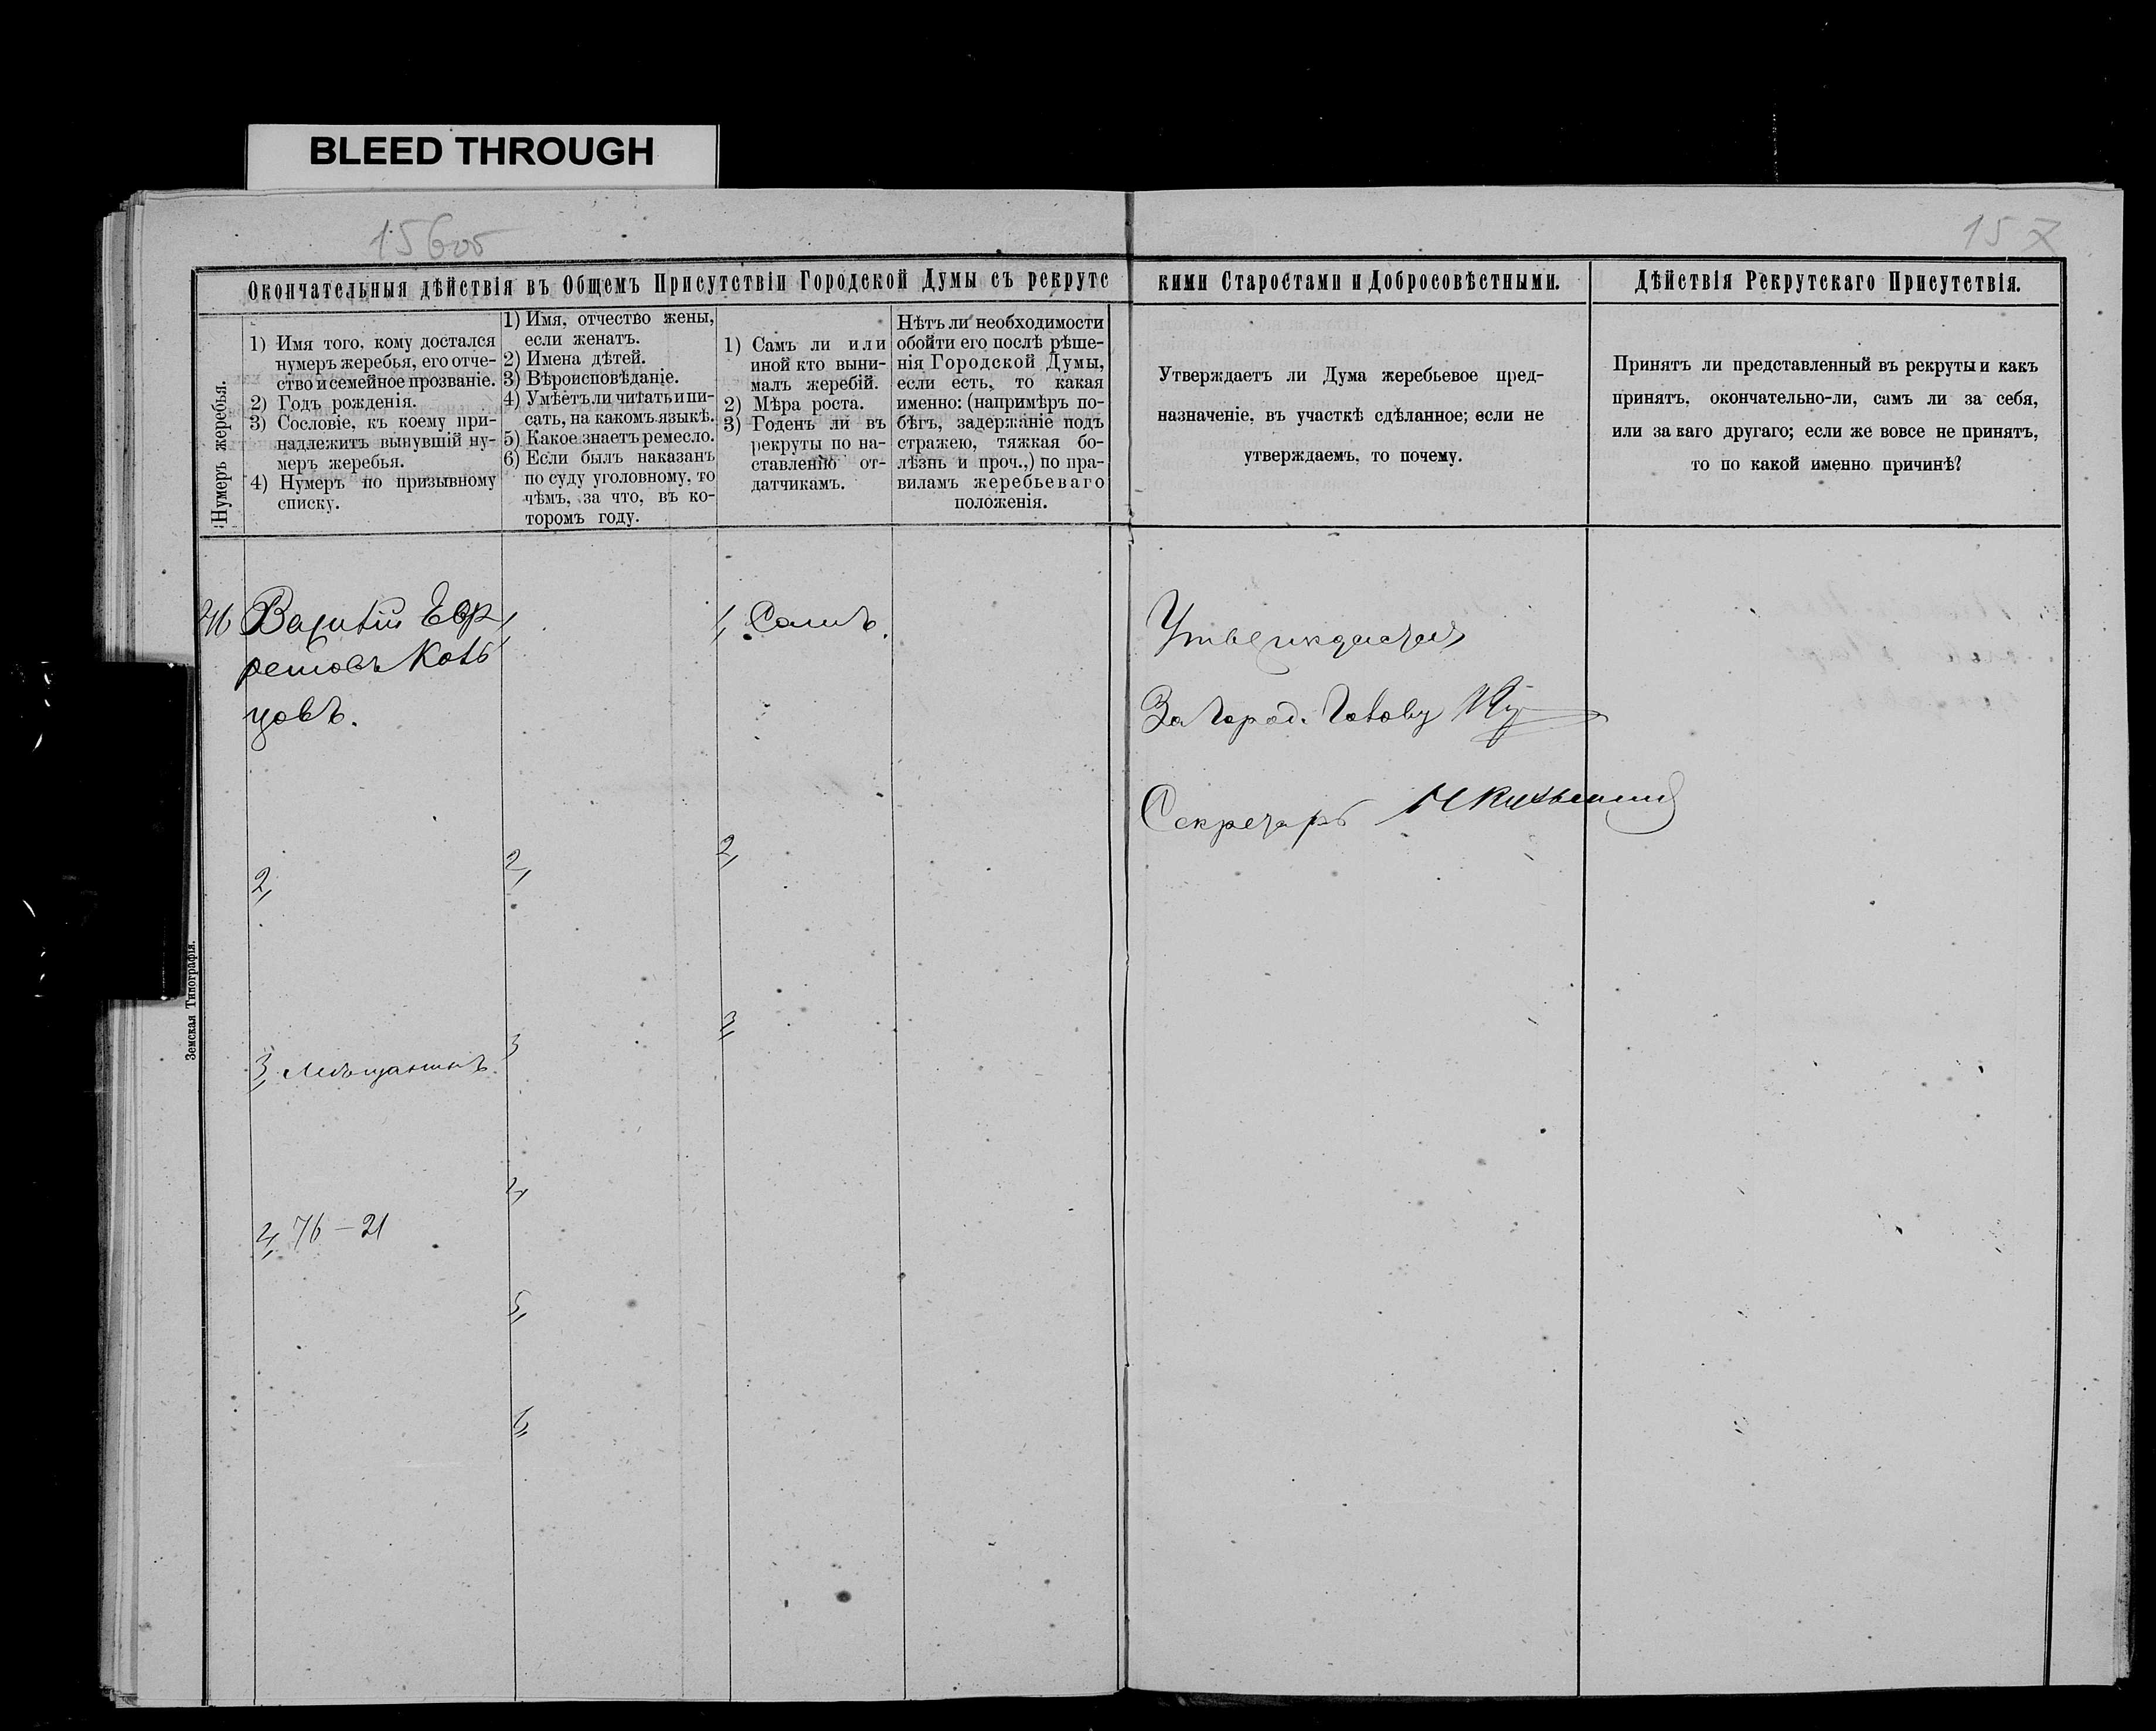 BLEED THROUGH
156об
157
Окончательныя дѣйствія въ Общемъ Присутствіи Городской Думы съ рекрутс
кими Старостами и Добросовѣстными.
Дѣйствія Рекрутскаго Присутствія.
Нумеръ жеребья.
1) Имя того, кому достался
нумеръ жеребья, его отче-
ство и семейное прозваніе.
2) Годъ рожденія.
3) Сословіе, къ коему при-
надлежитъ вынувшій ну-
меръ жеребья.
4) Нумеръ по призывному
списку.
1) Имя, отчество жены,
если женатъ.
2) Имена дѣтей.
3) Вѣроисповѣданіе.
4) Умѣетъ ли читать и пи-
сать, на какомъ языкѣ.
5) Какое знаетъ ремесло.
6) Если былъ наказанъ
по суду уголовному, то
чѣмъ, за что, въ ко-
торомъ году.
1) Самъ ли или
иной кто выни-
малъ жеребій.
2) Мѣра роста.
3) Годенъ ли въ
рекруты по на-
ставленію от-
датчикамъ.
Нѣтъ ли необходимости
обойти его послѣ рѣше-
нія Городской Думы,
если есть, то какая
именно: (напримѣръ по-
бѣгъ, задержаніе подъ
стражею, тяжкая бо-
лѣзнь и проч.,) по пра-
виламъ жеребьеваго
положенія.
Утверждаетъ ли Дума жеребьевое пред-
назначеніе, въ участкѣ сдѣланное; если не
утверждаемъ, то почему.
Принятъ ли представленный въ рекруты и какъ
принятъ, окончательно-ли, самъ ли за себя,
или за каго другаго; если же вовсе не принятъ,
то по какой именно причинѣ?
Василій Евф
ремовъ Коль
цовъ.
2,
3, Мѣщанинъ.
4, 76-21
1,
2,
3
4,
5,
6,
1, Самъ.
2,
3,
Утверждается
За Город. Голову
Секретарь
Земская Типографія.